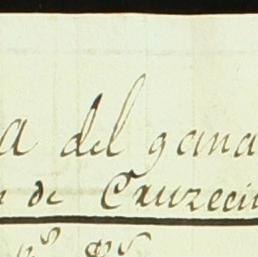 a del gana
n de Cruzeci